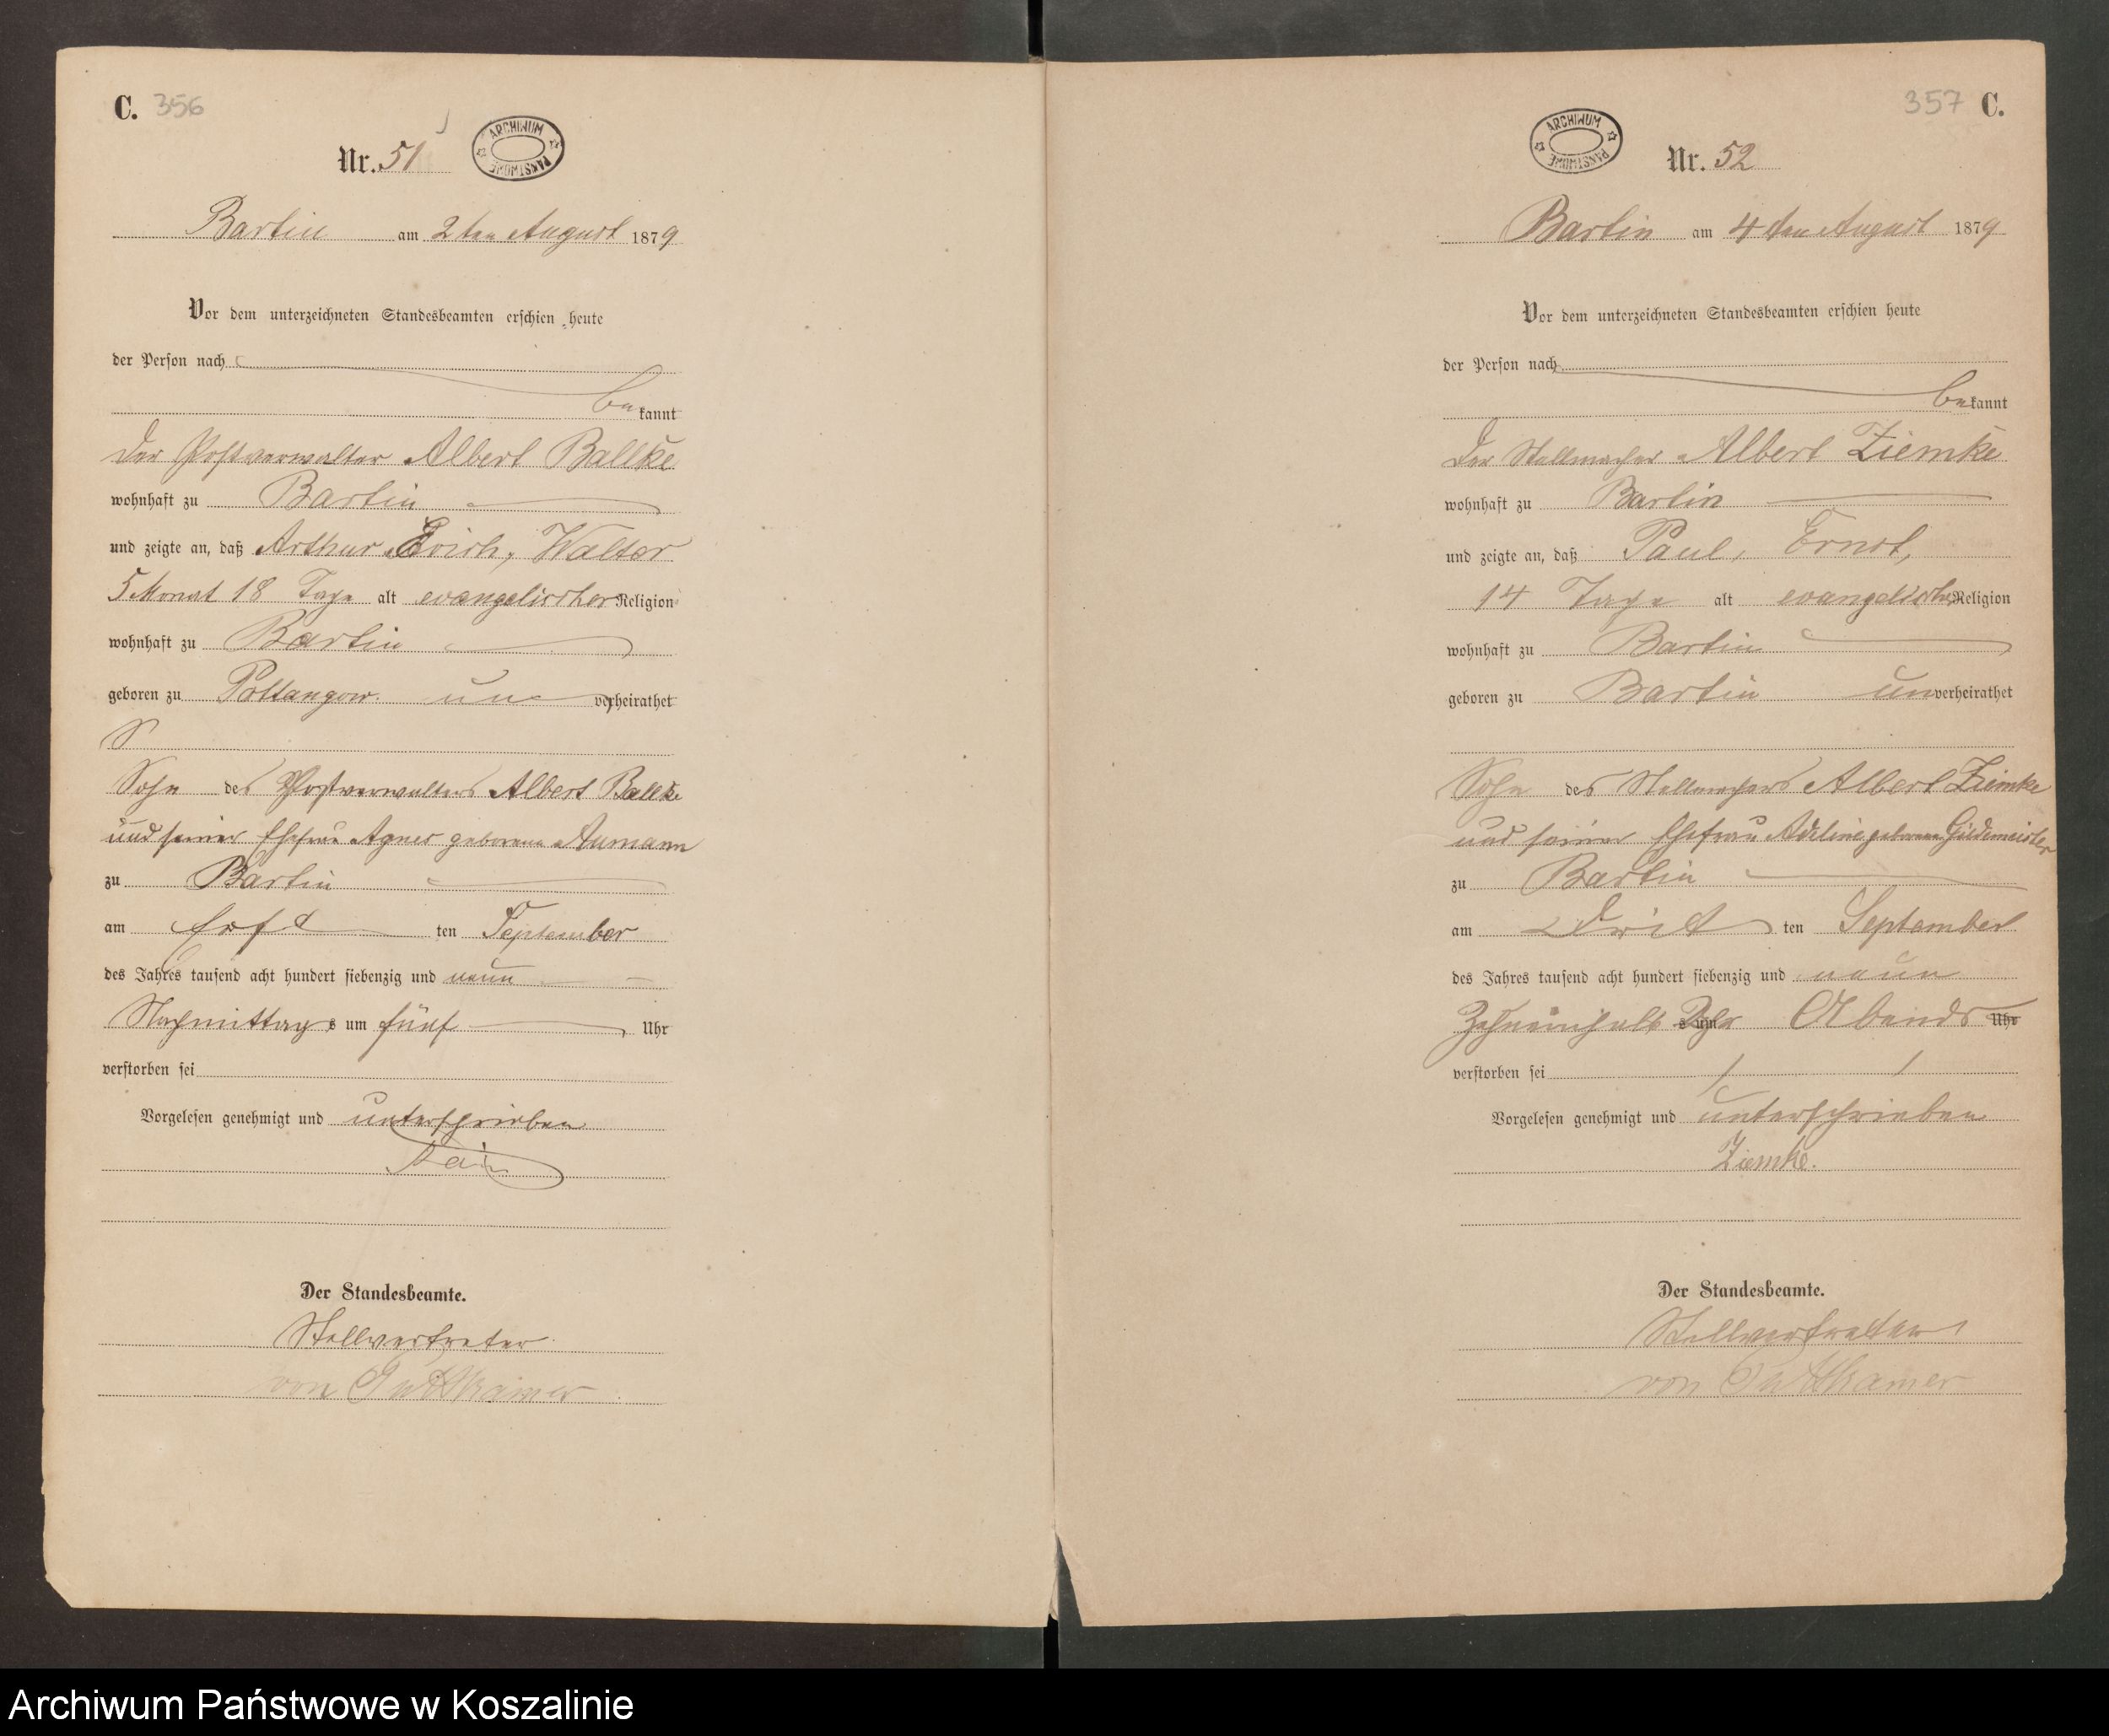 C. 356
Nr. 51
ARCHIWUM PAŃSTWOWE
Bartin am 2ten August 1879
Vor dem unterzeichneten Standesbeamten erschien heute
der Person nach
bekannt
Der Postverwalter Albert Ballke
wohnhaft zu Bartin
und zeigte an, daß Arthur, Erich, Walter
5 Monat 18 Tage alt evangelischer Religion
wohnhaft zu Bartin
geboren zu Pottangow. unverheirathet
Sohn des Postverwalters Albert Ballke
und seiner Ehefrau Agnes geborene Aumann
zu Bartin
am erst ten September
des Jahres tausend acht hundert siebenzig und neun
Nachmittags um fünf Uhr
verstorben sei
Vorgelesen genehmigt und unterschrieben
Der Standesbeamte.
Stellvertreter
von Puttkamer
357 C.
ARCHIWUM PAŃSTWOWE
Nr. 52
Bartin am 4ten August 1879
Vor dem unterzeichneten Standesbeamten erschien heute
der Person nach
bekannt
Der Stellmacher Albert Ziemke
wohnhaft zu Bartin
und zeigte an, daß Paul, Ernst,
14 Tage alt evangelischer Religion
wohnhaft zu Bartin
geboren zu Bartin unverheirathet
Sohn des Stellmachers Albert Ziemke
und seiner Ehefrau Adeline geborene Gildemeister
zu Bartin
am Drit ten September
des Jahres tausend acht hundert siebenzig und neun
Zehneinhalb Uhr s um Abends Uhr
verstorben sei
Vorgelesen genehmigt und unterschrieben
Ziemke.
Der Standesbeamte.
Stellvertreter
von Puttkamer
Archiwum Państwowe w Koszalinie